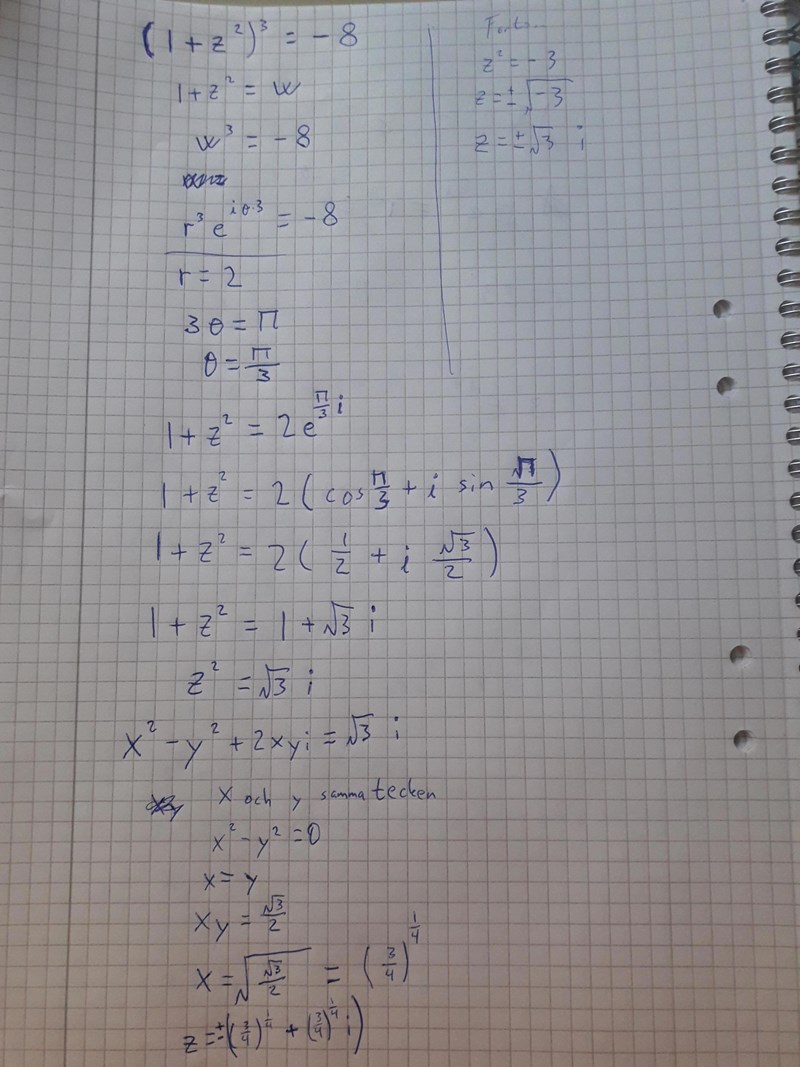 (1 + z²)³ = -8
1 + z² = w
w³ = -8
r³ e^{iθ·3} = -8
r = 2
3θ = π
θ = π/3
1 + z² = 2e^{π/3 i}
1 + z² = 2( cos π/3 + i sin π/3 )
1 + z² = 2( 1/2 + i √3/2 )
1 + z² = 1 + √3 i
z² = √3 i
x² - y² + 2xyi = √3 i
x och y samma tecken
x² - y² = 0
x = y
xy = √3/2
x = √(√3/2) = (3/4)^{1/4}
z = ±((3/4)^{1/4} + (3/4)^{1/4} i)
Forts..
z² = -3
z = ± √-3
z = ± √3 i